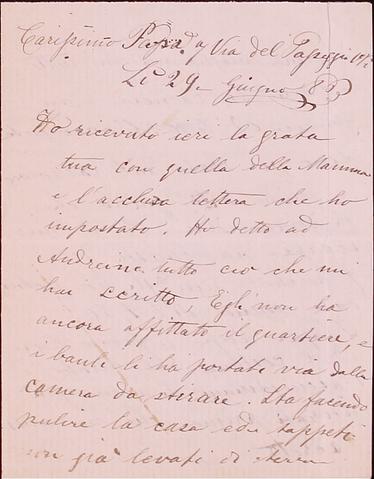 Carissimo Papà, Via del Papeggi
Li 29 Giugno 83
Ho ricevuto ieri la grata
tua con quella della Mamma
e l'acclusa lettera che ho
impostato. Ho detto ad
Andreina tutto ciò che mi
hai scritto, Egli non ha
ancora affittato il quartiere, e
i bauli li ha portati via dalla
camera da stirare. Sta facendo
pulire la casa ed i tappeti
son già levati di terra